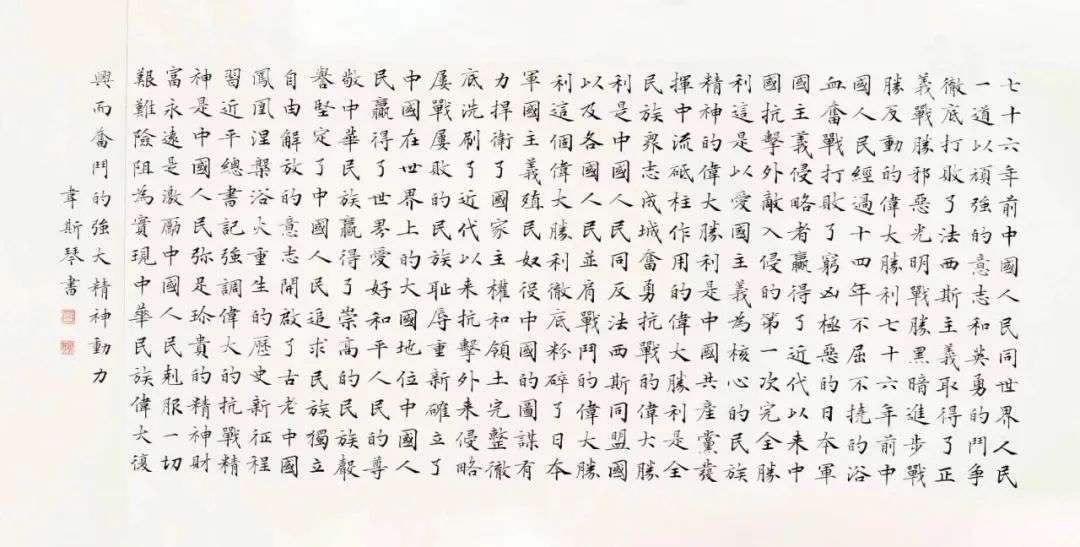 七十六年前中國人民同世界人民
一道以頑強的意志和英勇的鬥爭
徹底打敗了法西斯主義取得了正
義戰勝邪惡光明戰勝黑暗進步戰
勝反動的偉大勝利七十六年前中
國人民經過十四年不屈不撓的浴
血奮戰打敗了窮凶極惡的日本軍
國主義侵略者贏得了近代以來中
國抗擊外敵入侵的第一次完全勝
利這是以愛國主義為核心的民族
精神的偉大勝利是中國共產黨發
揮中流砥柱作用的偉大勝利是全
民族衆志成城奮勇抗戰的偉大勝
利是中國人民同反法西斯同盟國
以及各國人民並肩戰鬥的偉大勝
利這個偉大勝利徹底粉碎了日本
軍國主義殖民奴役中國的圖謀有
力捍衛了國家主權和領土完整徹
底洗刷了近代以來抗擊外來侵略
屢戰屢敗的民族恥辱重新確立了
中國在世界上的大國地位中國人
民贏得了世界愛好和平人民的尊
敬中華民族贏得了崇高的民族聲
譽堅定了中國人民追求民族獨立
自由解放的意志開啟了古老中國
鳳凰涅槃浴火重生的歷史新征程
習近平總書記強調偉大的抗戰精
神是中國人民弥足珍貴的精神財
富永遠是激勵中國人民剋服一切
艱難險阻為實現中華民族偉大復
興而奮鬥的強大精神動力
韋斯琴書